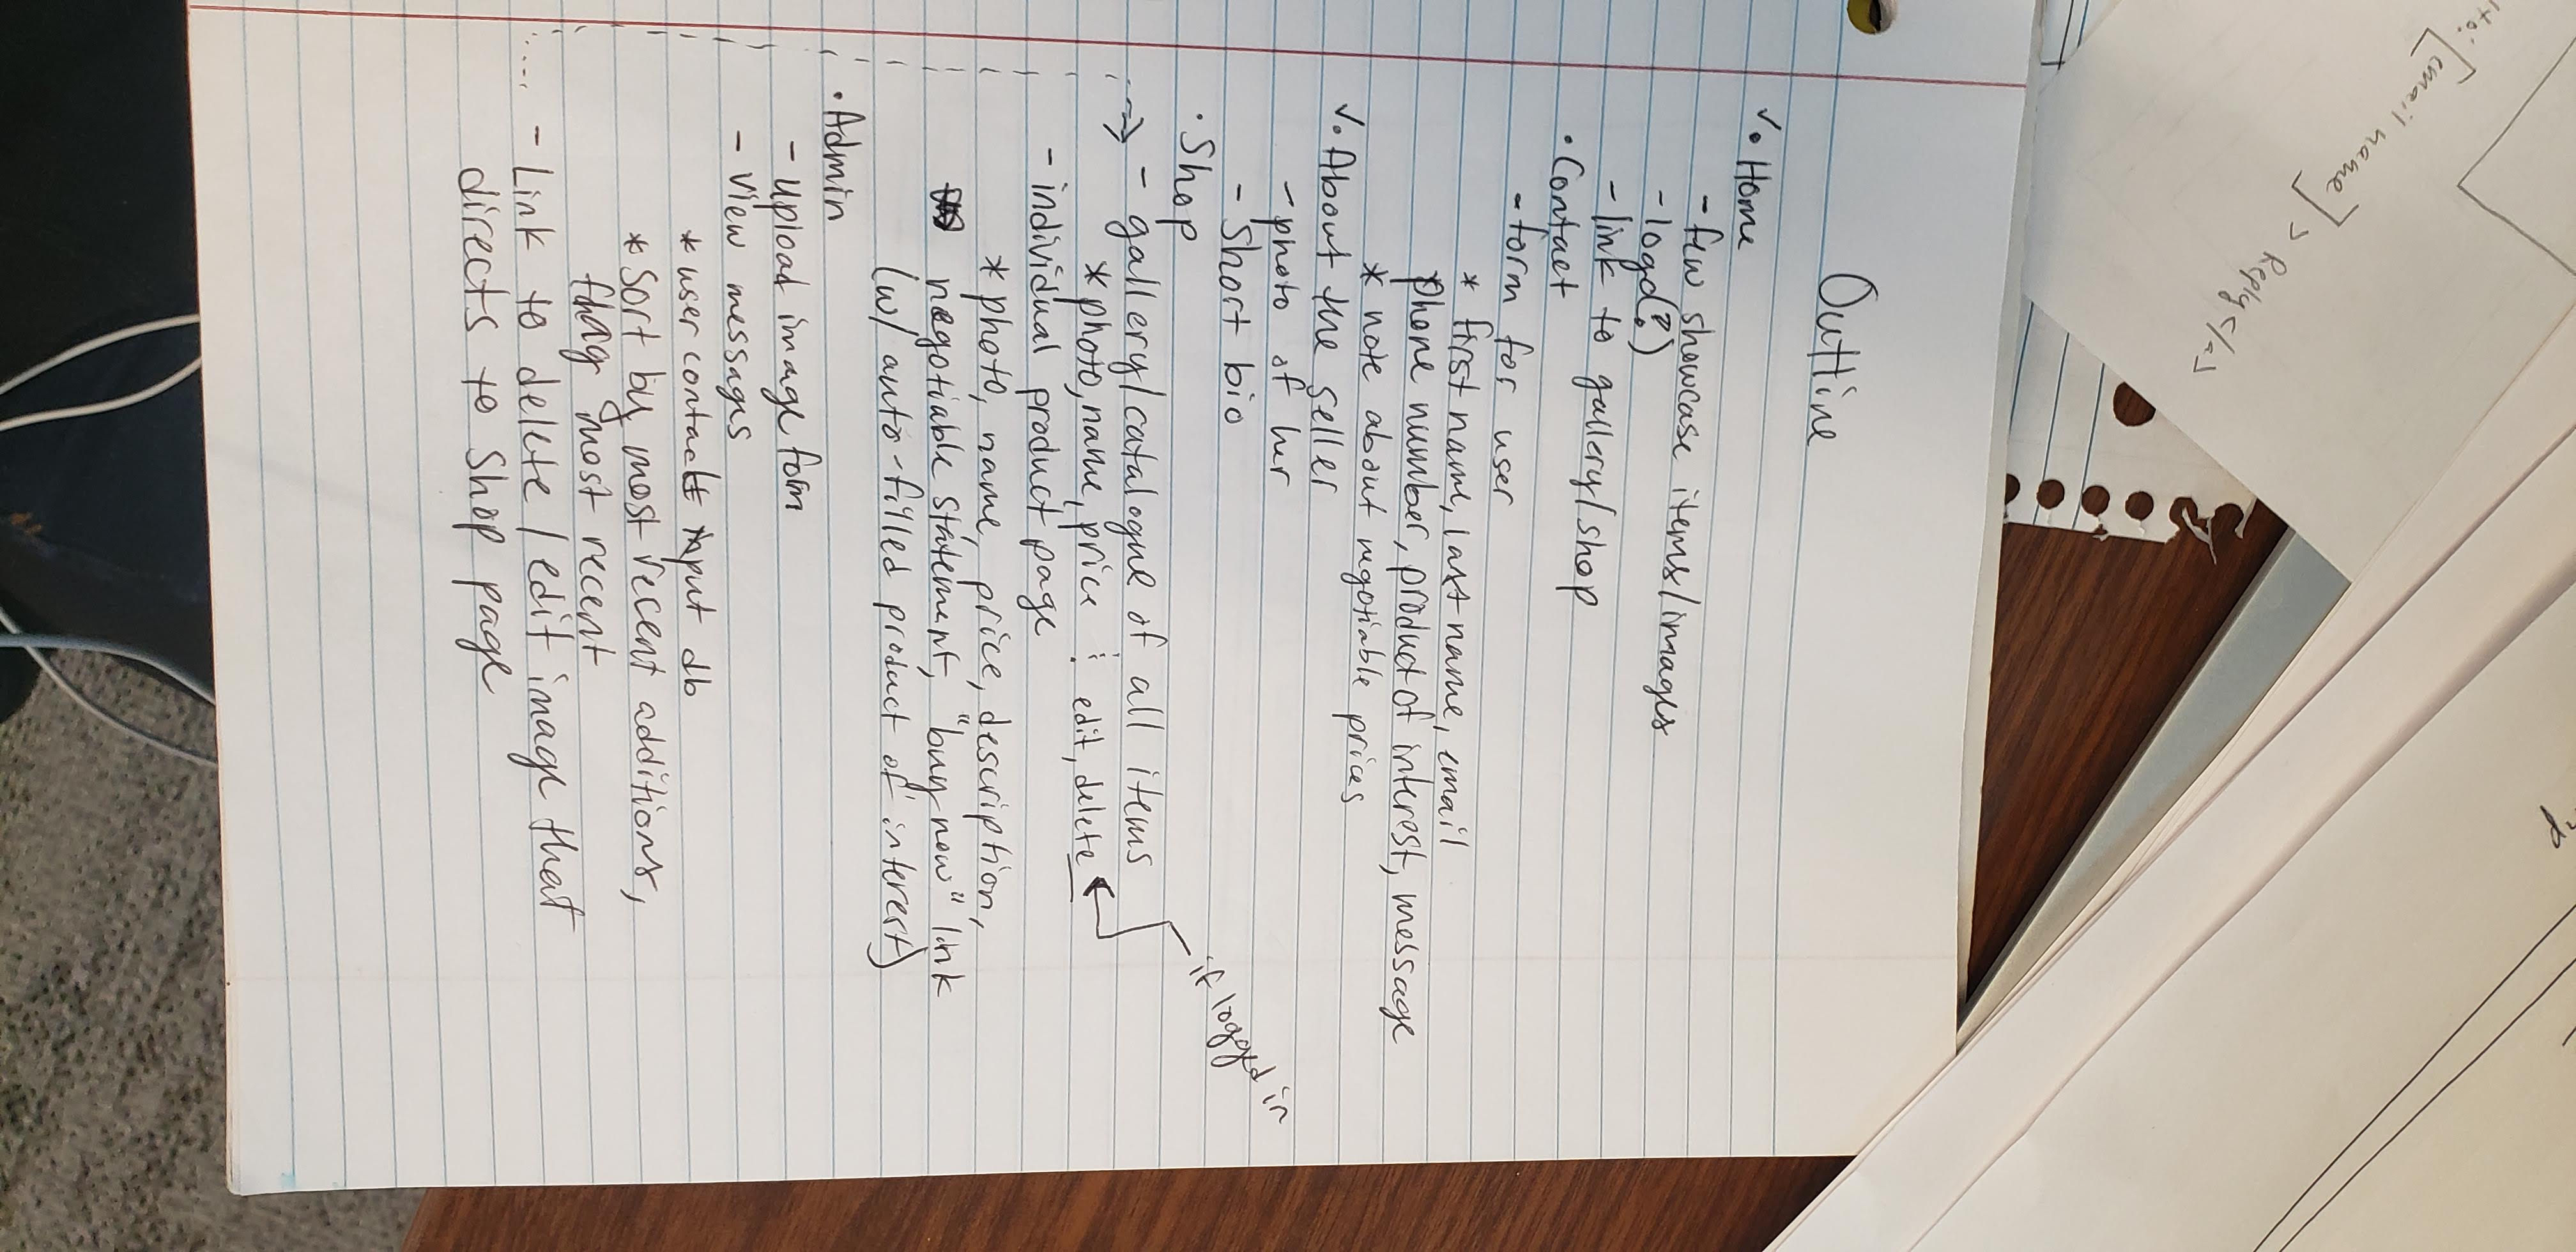 ito: [email name] > Reply</a>
Outline
✓• Home
- few showcase items/images
- logo(?)
- link to gallery/shop
• Contact
- form for user
* first name, last name, email
phone number, product of interest, message
* note about negotiable prices
✓• About the seller
- photo of her
- short bio
• Shop
if logged in
- gallery/catalogue of all items
* photo, name, price ⋮ edit, delete
- individual product page
* photo, name, price, description,
negotiable statement, "buy now" link
(w/ auto-filled product of interest)
• Admin
- upload image form
- View messages
* user contact input db
* Sort by most recent additions,
flag most recent
- Link to delete/edit image that
directs to Shop page